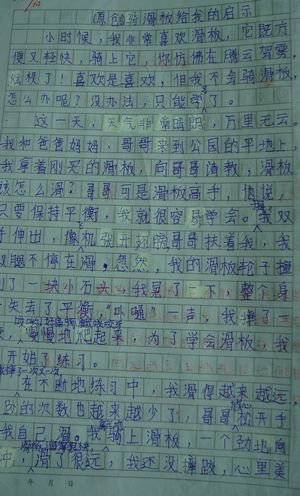 原创 滑板给我的启示
小时候,我非常喜欢滑板,它既方
便又轻快,骑上它,你仿佛在腾云驾雾,
极了!喜欢是喜欢,但我不会骑滑板,
怎么办呢?没办法,只能学了。
这一天,天气非常晴朗,万里无云。
我和爸爸妈妈、哥哥来到公园的平地上,
我拿着刚买的滑板,向哥哥请教,滑板
该怎么滑?哥哥可是滑板高手,他说,
只要保持平衡,我就很容易学会。我双
手伸出,像机 张开翅膀哥哥扶着我,我
双腿不停在滑。忽然,我的滑板轮子撞
到了一块小石头,我晃了一下,整个身
失去了平衡,“ ”一声,我摔了
慢慢地爬起来,为了学会滑板,我
开始了练习。
一次 一次
在不断地练习中,我滑得越来越远
的次数也越来越少了。哥哥 松开手
我自己滑。我骑上滑板,一个劲地向
冲,滑了很远,我还没摔跤,心里美
年 月 日